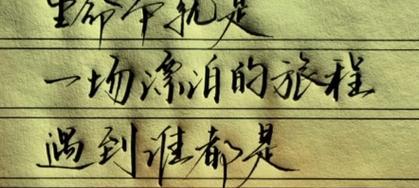 生命本就是
一场漂泊的旅程
遇到谁都是